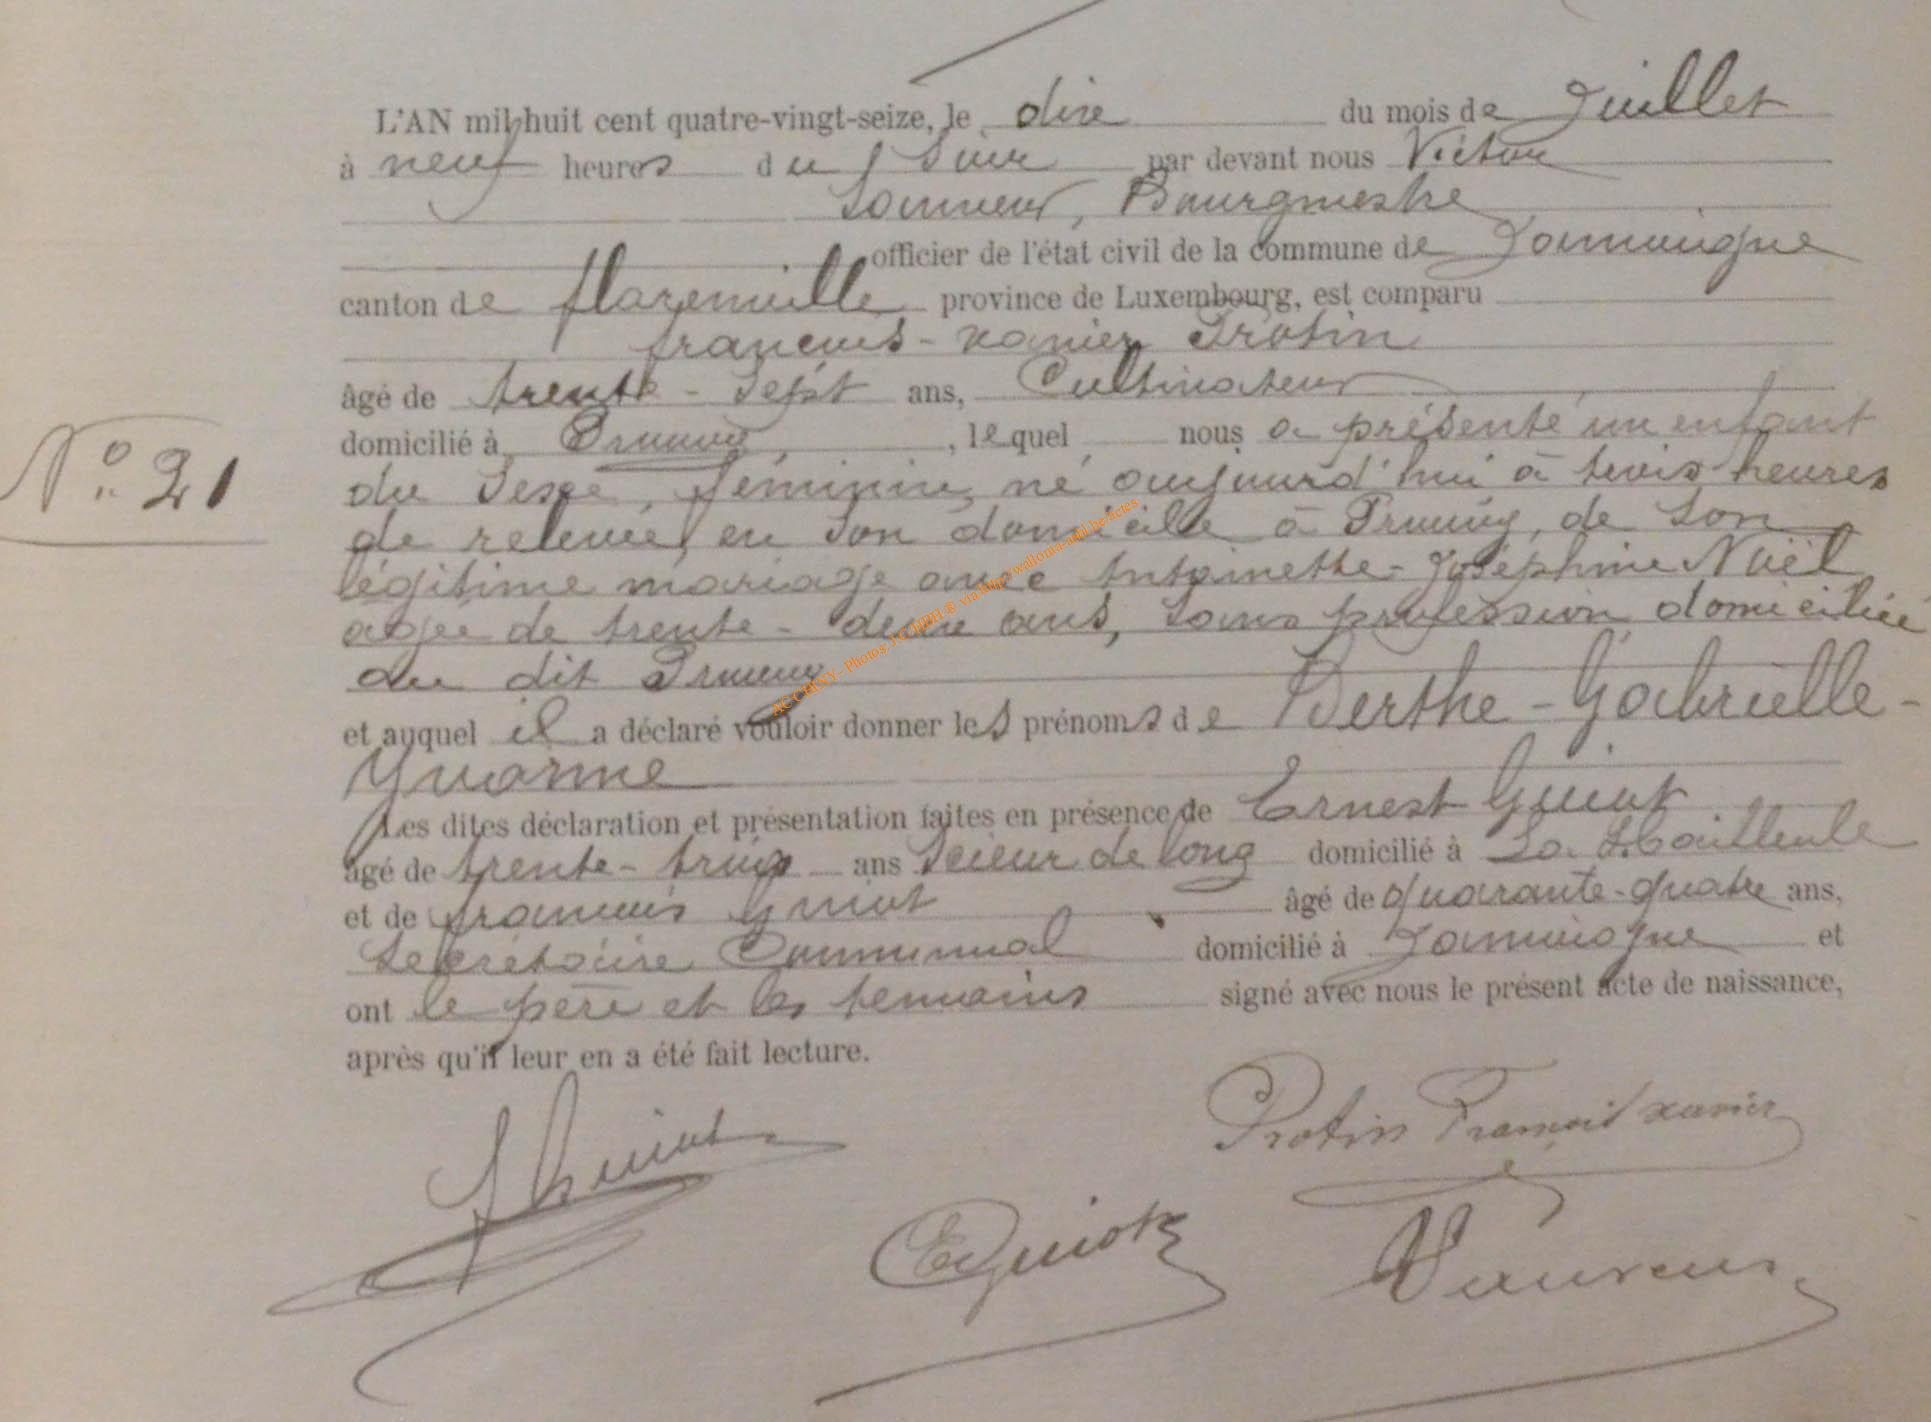 L'AN mil huit cent quatre-vingt-seize, le dix du mois de Juillet
à neuf heures du soir par devant nous Victor
Bourgmestre
officier de l'état civil de la commune de Jamoigne
canton de florenville province de Luxembourg, est comparu
françois-xavier Protin
âgé de trente-sept ans, Cultivateur
domicilié à Prouvy, lequel nous a présenté un enfant
N° 21
du sexe féminin, né aujourd'hui à trois heures
de relevée, en son domicile à Prouvy, de son
légitime mariage avec Antoinette-Joséphine Noël
agée de trente-deux ans, sans profession domiciliée
au dit Prouvy
et auquel il a déclaré vouloir donner les prénoms de Berthe-Gabrielle-
Yvonne
Les dites déclaration et présentation faites en présence de Ernest Guiot
âgé de trente-trois ans scieur de long domicilié à
et de françois Guiot âgé de quarante-quatre ans,
Secrétaire Communal domicilié à Jamoigne et
ont le père et les temoins signé avec nous le présent acte de naissance,
après qu'il leur en a été fait lecture.
Protin François xavier
f Guiot
E Guiot
AC CHINY - Photos